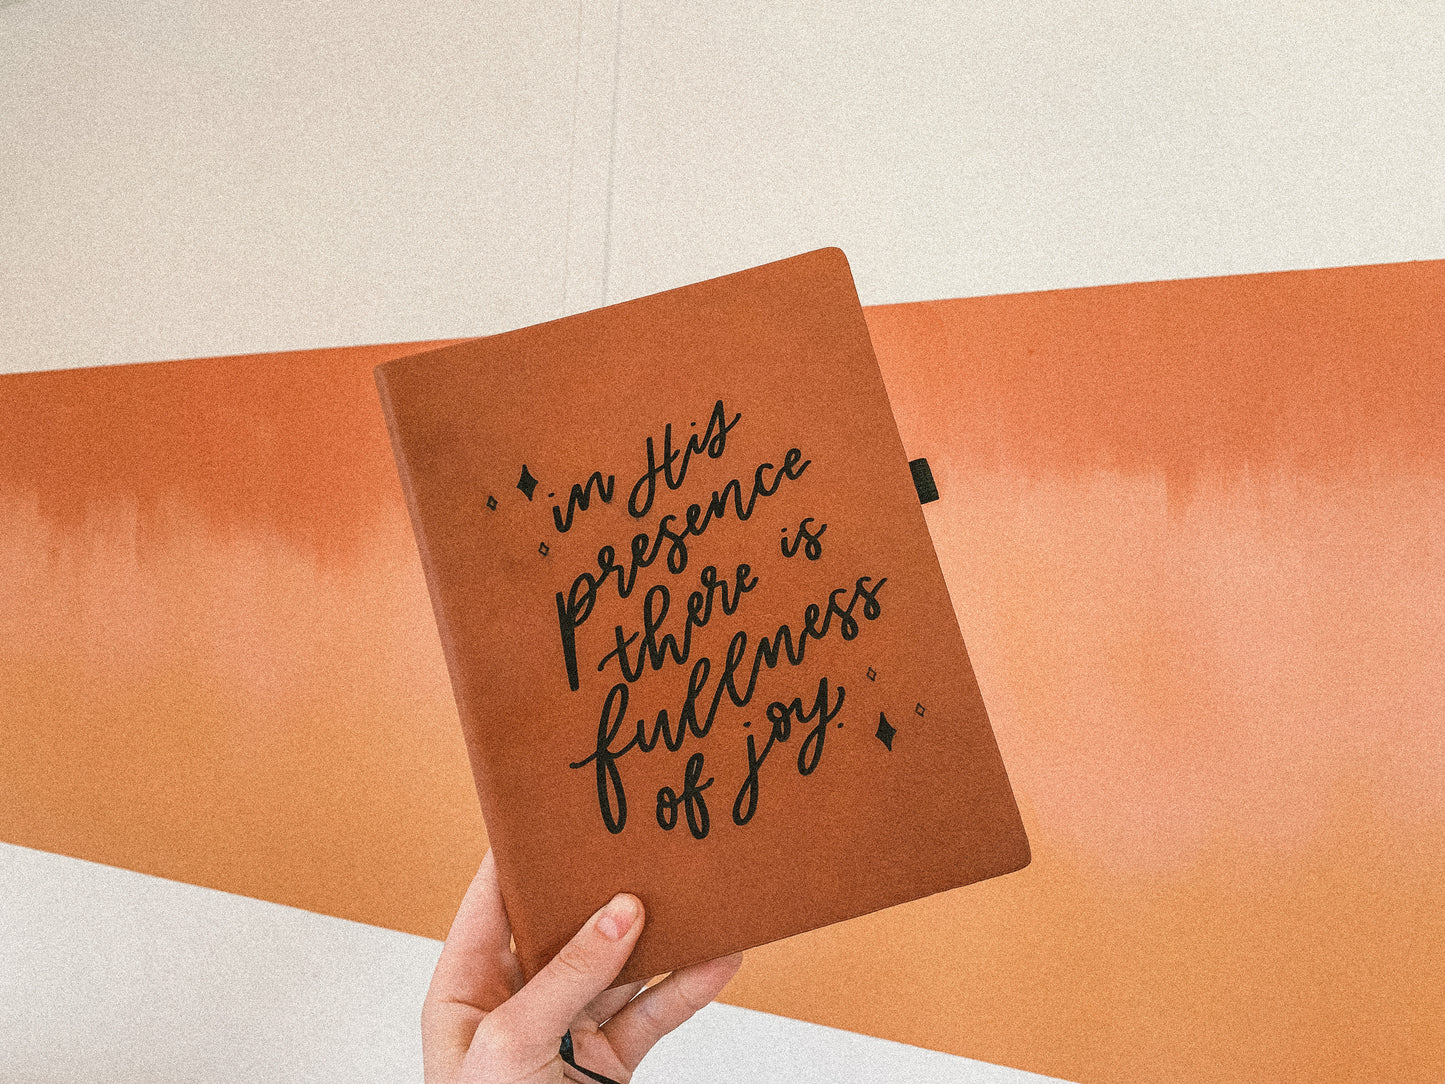 in His
presence
there is
fullness
of joy.